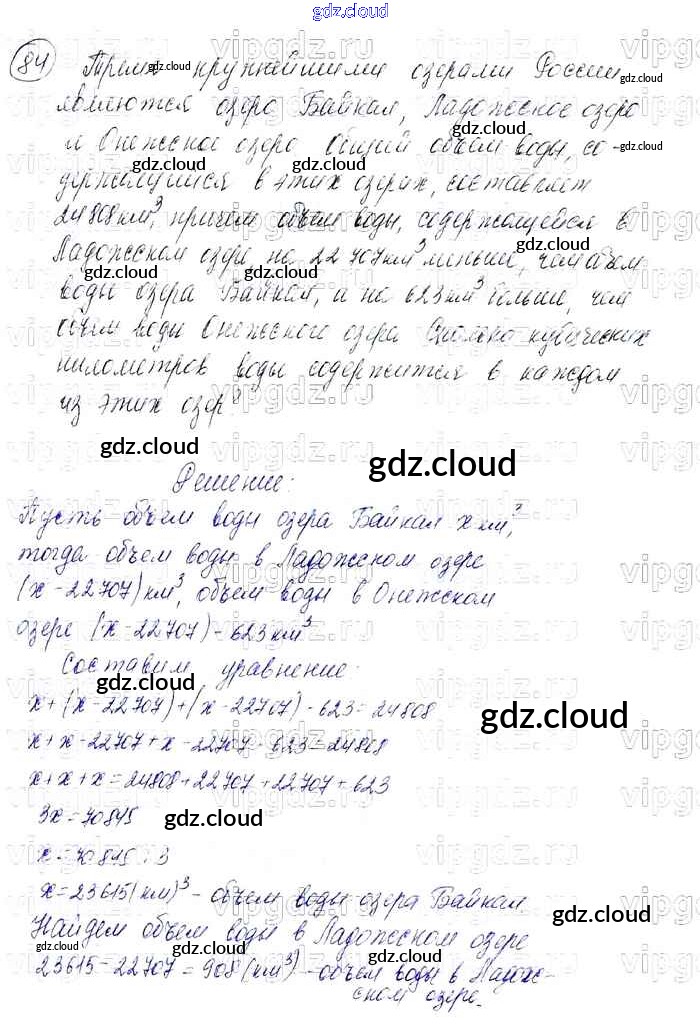 gdz.cloud
84 Тремя крупнейшими озерами России
являются озеро Байкал, Ладожское озеро
и Онежское озеро Общий объем воды, со-
держащийся в этих озерах, составляет
24808 км³, причем объем воды, содержащейся в
Ладожском озере на 22 707 км³ меньше, чем объем
воды озера Байкал, а на 623 км³ больше, чем
объем воды Онежского озера Сколько кубических
километров воды содержится в каждом
из этих озер?
gdz.cloud
Решение:
Пусть объем воды озера Байкал x км³,
тогда объем воды в Ладожском озере
(x - 22707) км³, объем воды в Онежском
озере (x - 22707) - 623 км³
Составим уравнение:
x + (x - 22707) + (x - 22707) - 623 = 24808
x + x - 22707 + x - 22707 - 623 = 24808
x + x + x = 24808 + 22707 + 22707 + 623
3x = 70845
x = 70845 : 3
x = 23615 (км)³ - объем воды озера Байкал
Найдем объем воды в Ладожском озере
23615 - 22707 = 908 (км³) - объем воды в Ладож-
ском озере.